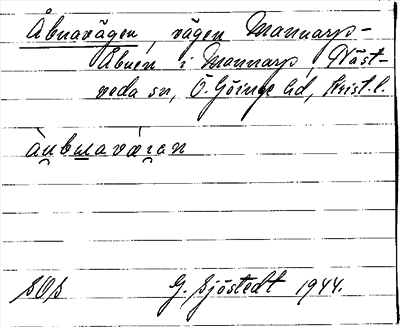 Åbnavägen, vägen Mannarp-
Åbuen i Mannarp, Näst-
veda sn, Ö. Göinge hd, Krist. l.
àubmavæɪan
SOS G. Sjöstedt 1944.